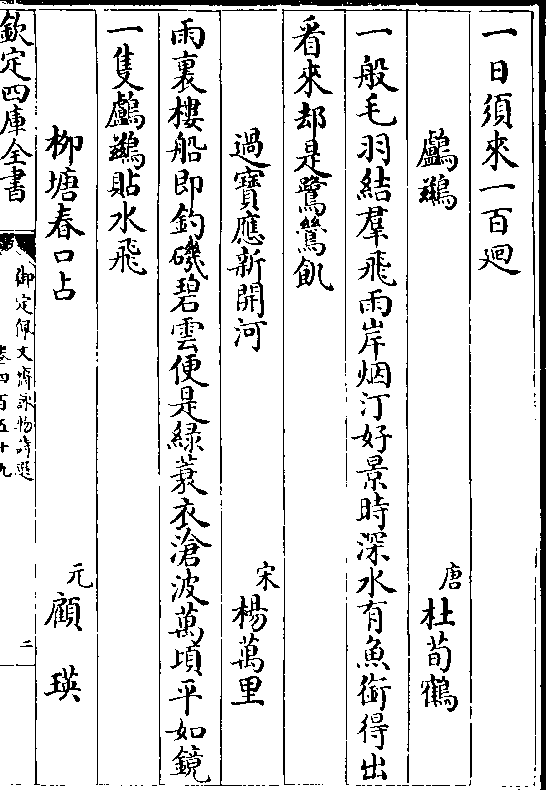 一日須來一百廻
鸕鷀　唐杜荀鶴
一般毛羽結羣飛雨岸烟汀好景時深水有魚銜得出
看來却是鷺鷥飢
過寶應新開河　宋楊萬里
雨裏樓船即釣磯碧雲便是綠蓑衣滄波萬頃平如鏡
一隻鸕鷀貼水飛
柳塘春口占　元顧瑛
欽定四庫全書
御定佩文齋詠物詩選
卷四百五十九
二